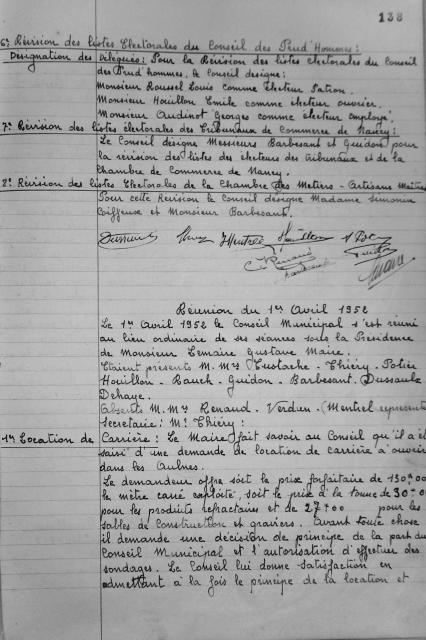 138
6º Révision des listes Electorales du Conseil des Prud'Hommes:
Désignation des Délégués: Pour la Révision des listes électorales du Conseil
des Prud'hommes, le Conseil désigne:
Monsieur Roussel Louis comme Electeur Patron.
Monsieur Houillon Emile comme électeur ouvrier.
Monsieur Audinot Georges comme électeur Employé.
7º Révision des listes électorales des Tribunaux de Commerce de Nancy:
Le Conseil désigne Messieurs Barbesant et Guidon pour
la révision des listes des électeurs des tribunaux et de la
Chambre de Commerce de Nancy.
8º Révision des listes Electorales de la Chambre des Métiers - Artisans Maîtres
Pour cette Révision le Conseil désigne Madame Simonin
Coiffeuse et Monsieur Barbesant.
Dussaulx Houillon
Renaud Guidon
Barbesant
Réunion du 1er Avril 1952
Le 1er Avril 1952 le Conseil Municipal s'est réuni
au lieu ordinaire de ses séances sous la Présidence
de Monsieur Lemaire Gustave Maire.
Etaient présents M.Mrs Eustache - Thiéry - Potier
Houillon - Rauch - Guidon - Barbesant - Dussaulx
Dehaye.
Absents M.Mrs Renaud - Verdun - (Mentrel représenté
Secrétaire: Mr Thiéry:
1º Location de Carrière: Le Maire fait savoir au Conseil qu'il a été
saisi d'une demande de location de carrière à ouvrir
dans les Aulnes.
Le demandeur offre soit le prix forfaitaire de 130f00
le mètre carré exploité, soit le prix à la tonne de 30f00
pour les produits réfractaires et de 27f00 pour les
sables de Construction et graviers. Avant toute chose
il demande une décision de principe de la part du
Conseil Municipal et l'autorisation d'effectuer des
sondages. Le Conseil lui donne satisfaction en
admettant à la fois le principe de la location et